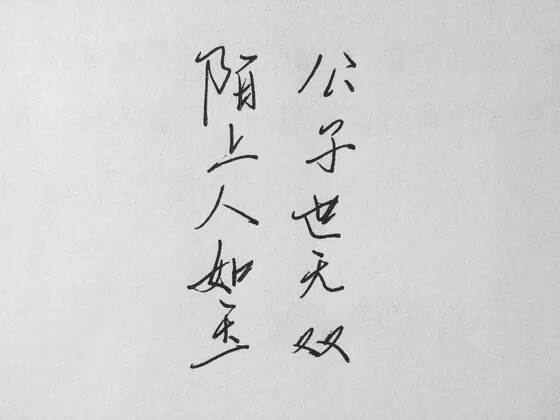 公子世无双
陌上人如玉